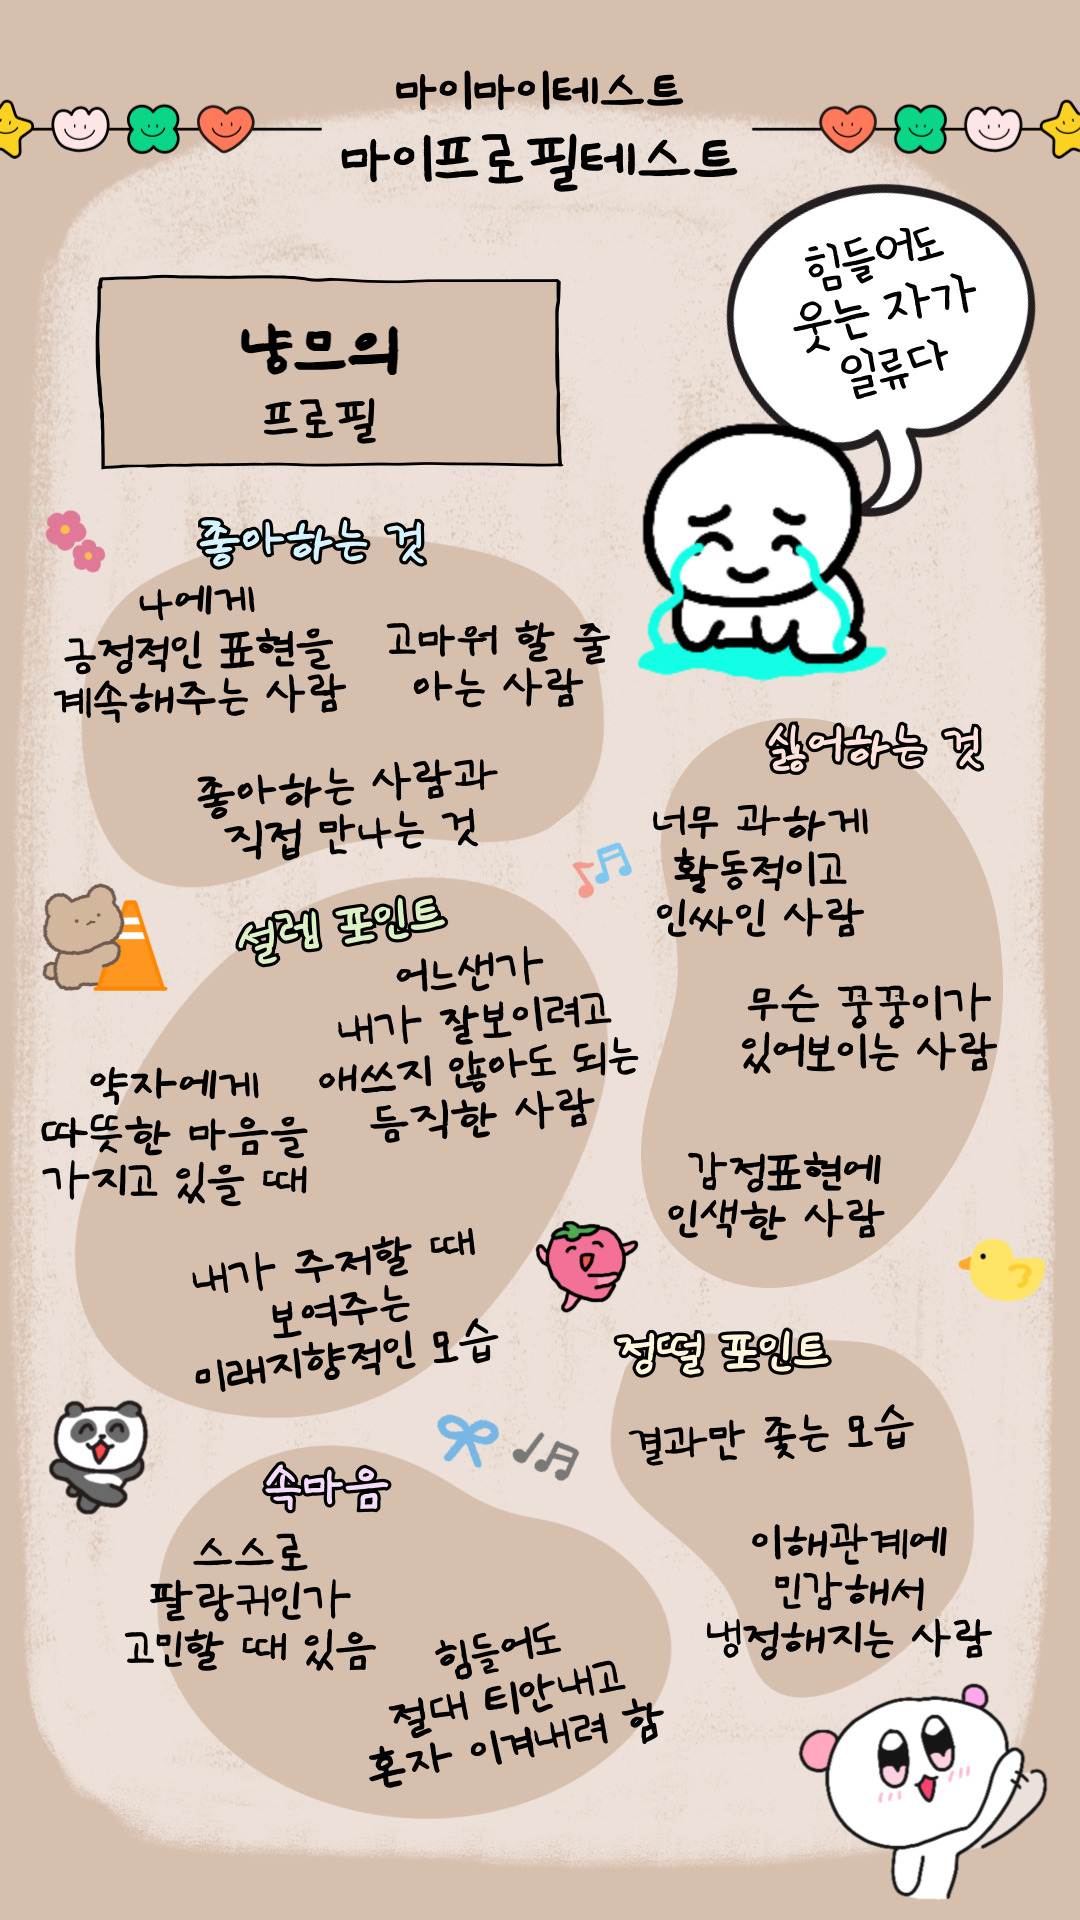 마이마이테스트
마이프로필테스트
힘들어도
웃는 자가
일류다
냥므의
프로필
좋아하는 것
나에게
긍정적인 표현을
계속해주는 사람
고마워 할 줄
아는 사람
좋아하는 사람과
직접 만나는 것
싫어하는 것
너무 과하게
활동적이고
인싸인 사람
무슨 꿍꿍이가
있어보이는 사람
감정표현에
인색한 사람
설렘 포인트
어느샌가
내가 잘보이려고
애쓰지 않아도 되는
듬직한 사람
약자에게
따뜻한 마음을
가지고 있을 때
내가 주저할 때
보여주는
미래지향적인 모습
정떨 포인트
결과만 좇는 모습
이해관계에
민감해서
냉정해지는 사람
속마음
스스로
팔랑귀인가
고민할 때 있음
힘들어도
절대 티안내고
혼자 이겨내려 함